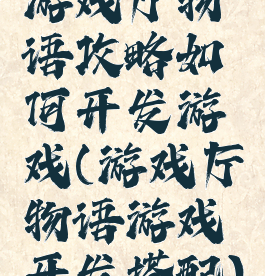 游戏厅物
语攻略如
何开发游
戏(游戏厅
物语游戏
开发搭配)